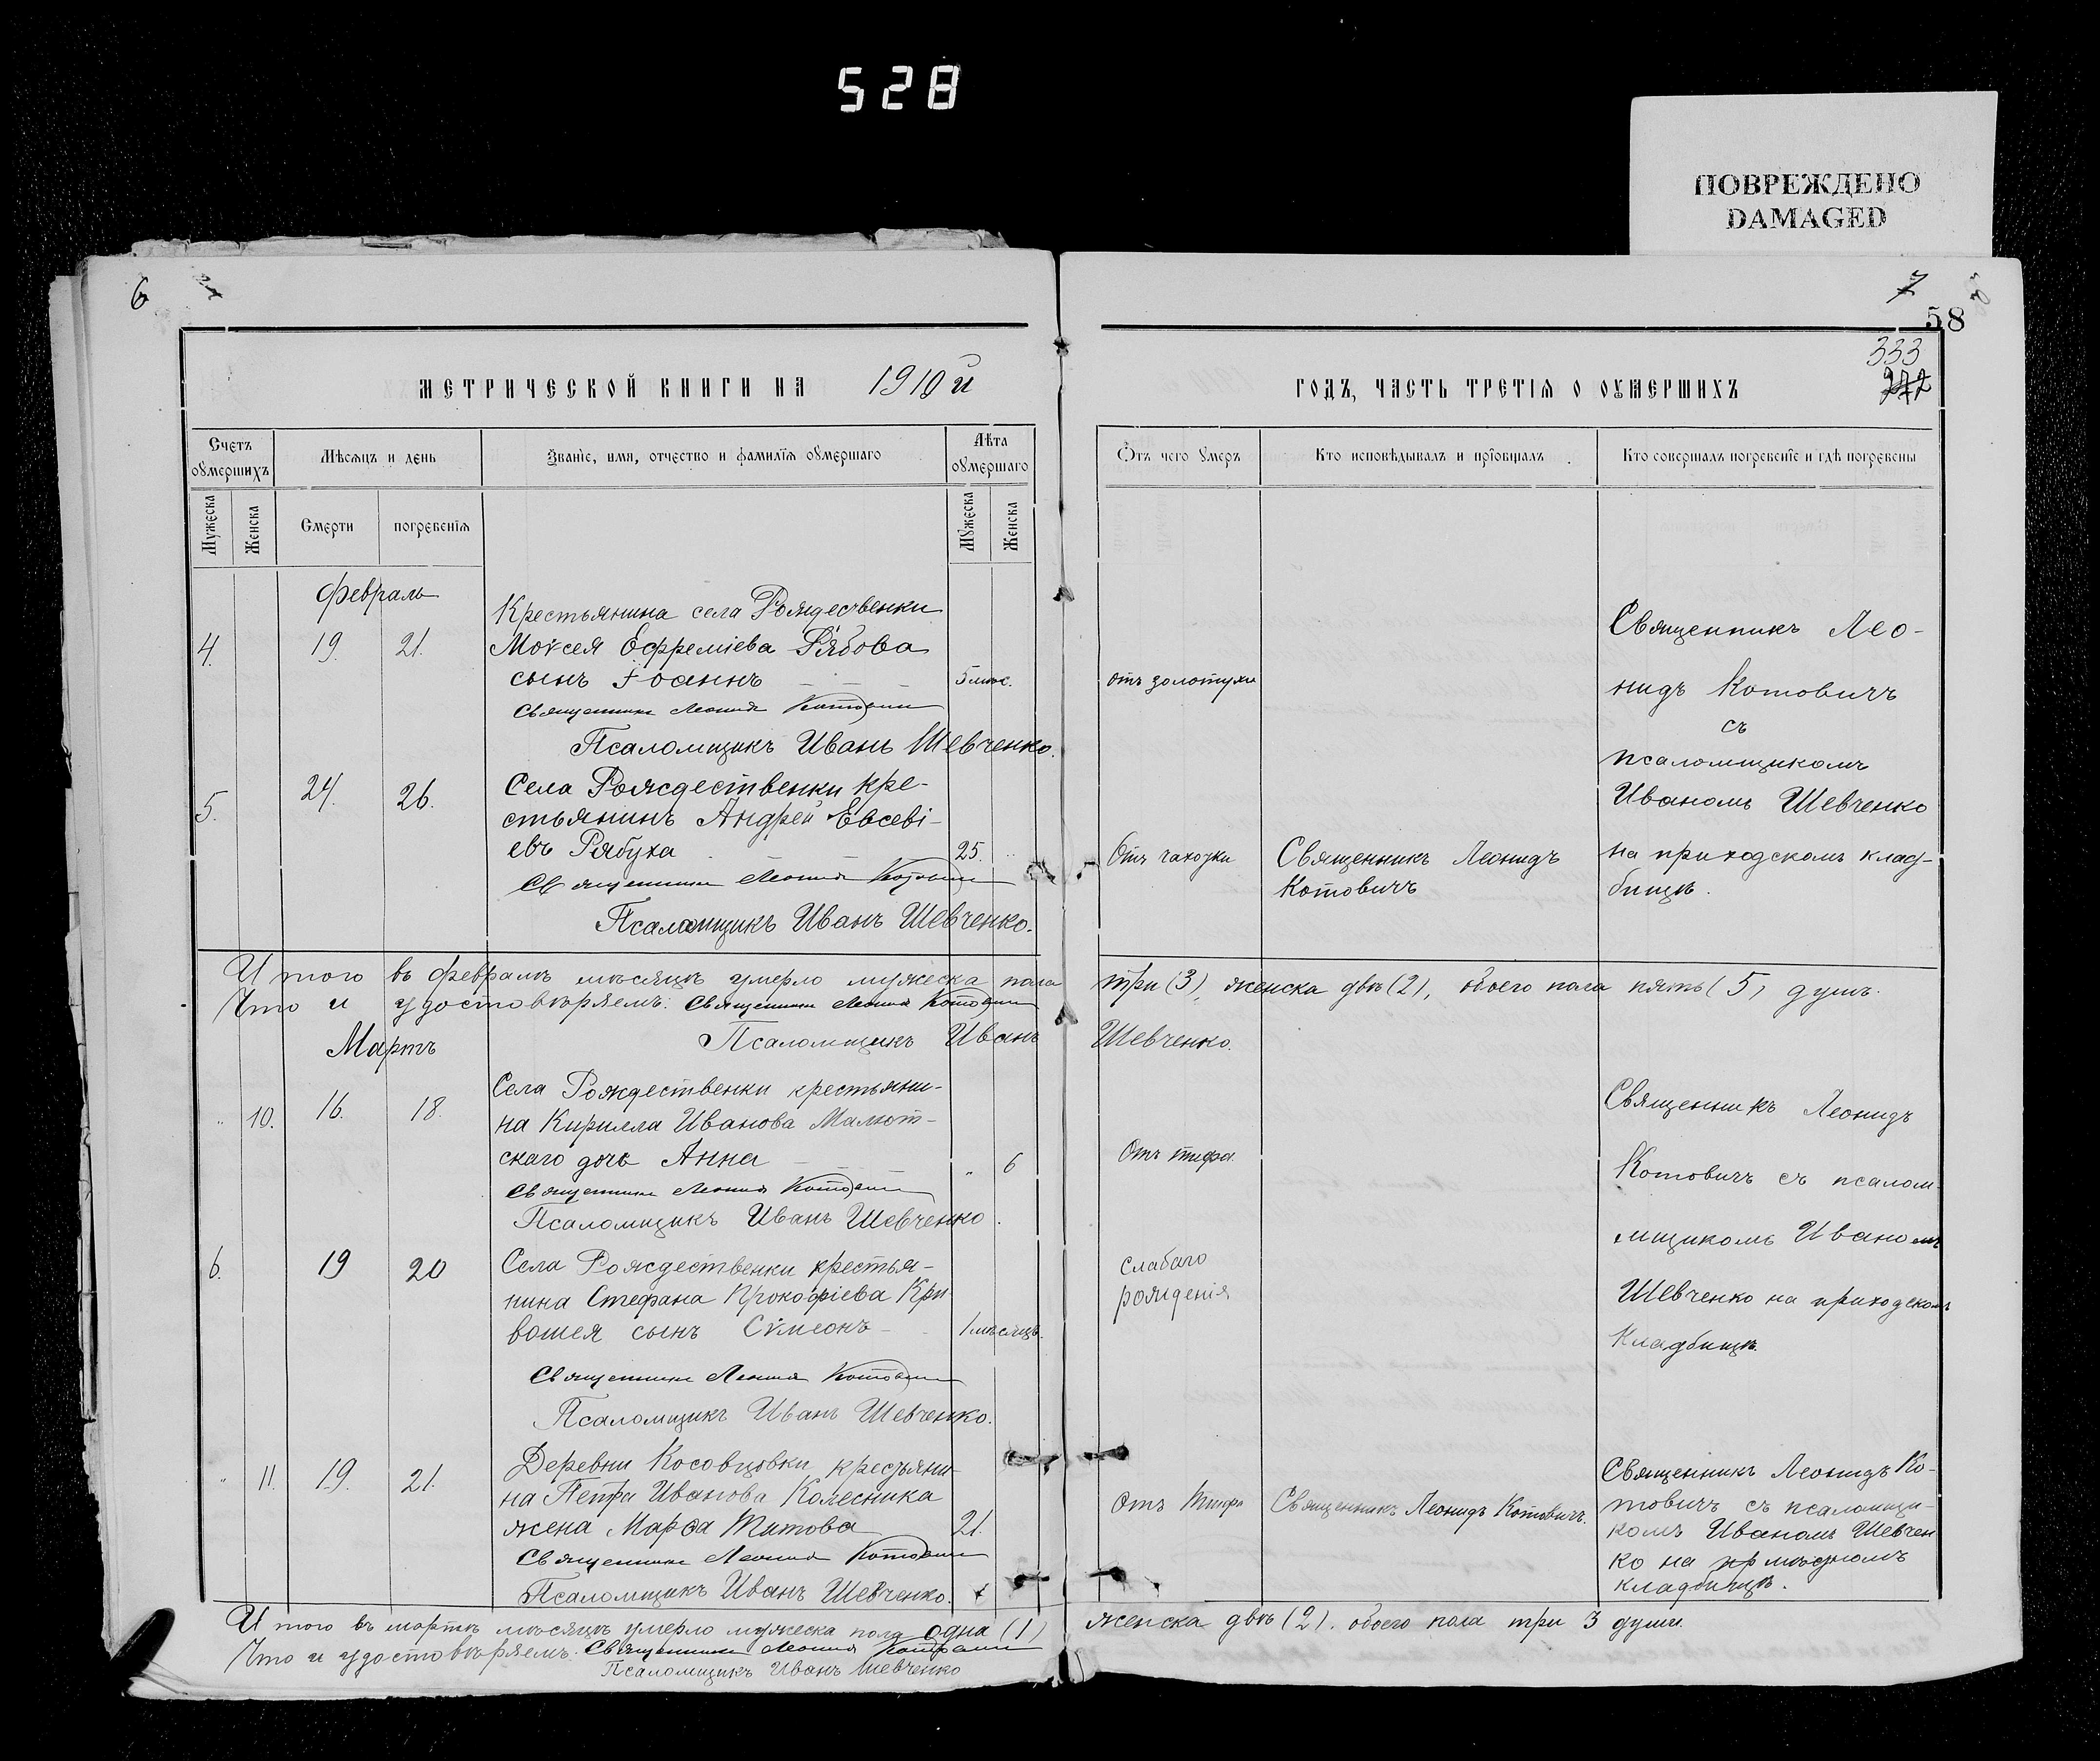 528
ПОВРЕЖДЕНО
DAMAGED
6
7
58
333
272
МЕТРИЧЕСКОЙ КНИГИ НА 1910й
ГОДЪ, ЧАСТЬ ТРЕТІЯ О ОУМЕРШИХЪ
Счетъ оумершихъ
Мѣсяцъ и день
Званіе, имя, отчество и фамилія оумершаго
Лѣта оумершаго
Мужеска
Женска
Смерти
погребенія
Мужеска
Женска
Отъ чего умеръ
Кто исповѣдывалъ и пріобщалъ
Кто совершалъ погребеніе и гдѣ погребены
Февраль
4.
19.
21.
Крестьянина села Рождественки
Моѵсея Ефреміева Рябова
сынъ Іоаннъ
5 мѣс.
Священникъ Леонидъ Котовичъ
Псаломщикъ Иванъ Шевченко.
отъ золотухи
Священникъ Лео-
нидъ Котовичъ
съ
псаломщикомъ
Иваномъ Шевченко
на приходскомъ клад-
бищѣ.
5.
24.
26.
Села Рождественки кре-
стьянинъ Андрей Евсеві-
евъ Рябуха
25.
Священникъ Леонидъ Котовичъ
Псаломщикъ Иванъ Шевченко.
Отъ чахотки
Священникъ Леонидъ
Котовичъ
Итого въ февралѣ мѣсяцѣ умерло мужеска пола три (3), женска двѣ (2), обоего пола пять (5) душъ.
Что и удостовѣряемъ: Священникъ Леонидъ Котовичъ
Псаломщикъ Иванъ Шевченко.
Мартъ
10.
16.
18.
Села Рождественки крестьяни-
на Кирилла Иванова Малют-
скаго дочь Анна
6
Священникъ Леонидъ Котовичъ
Псаломщикъ Иванъ Шевченко.
Отъ тифа.
Священникъ Леонидъ
Котовичъ съ псалом-
щикомъ Иваномъ
Шевченко на приходскомъ
кладбищѣ.
6.
19
20
Села Рождественки крестья-
нина Стефана Прокофіева Кри
вошея сынъ Сѵмеонъ
1 мѣсяцъ.
Священникъ Леонидъ Котовичъ
Псаломщикъ Иванъ Шевченко.
слабаго
рожденія
11.
19.
21.
Деревни Косовцовки крестьяни-
на Петра Иванова Колесника
жена Марѳа Титова
21.
Священникъ Леонидъ Котовичъ
Псаломщикъ Иванъ Шевченко.
Отъ тифа
Священникъ Леонидъ Котовичъ.
Священникъ Леонидъ Ко-
товичъ съ псаломщи-
комъ Иваномъ Шевчен
ко на мѣстномъ
кладбищѣ.
Итого въ мартѣ мѣсяцѣ умерло мужеска пола одна (1) женска двѣ (2). обоего пола три 3 души.
Что и удостовѣряемъ: Священникъ Леонидъ Котовичъ
Псаломщикъ Иванъ Шевченко